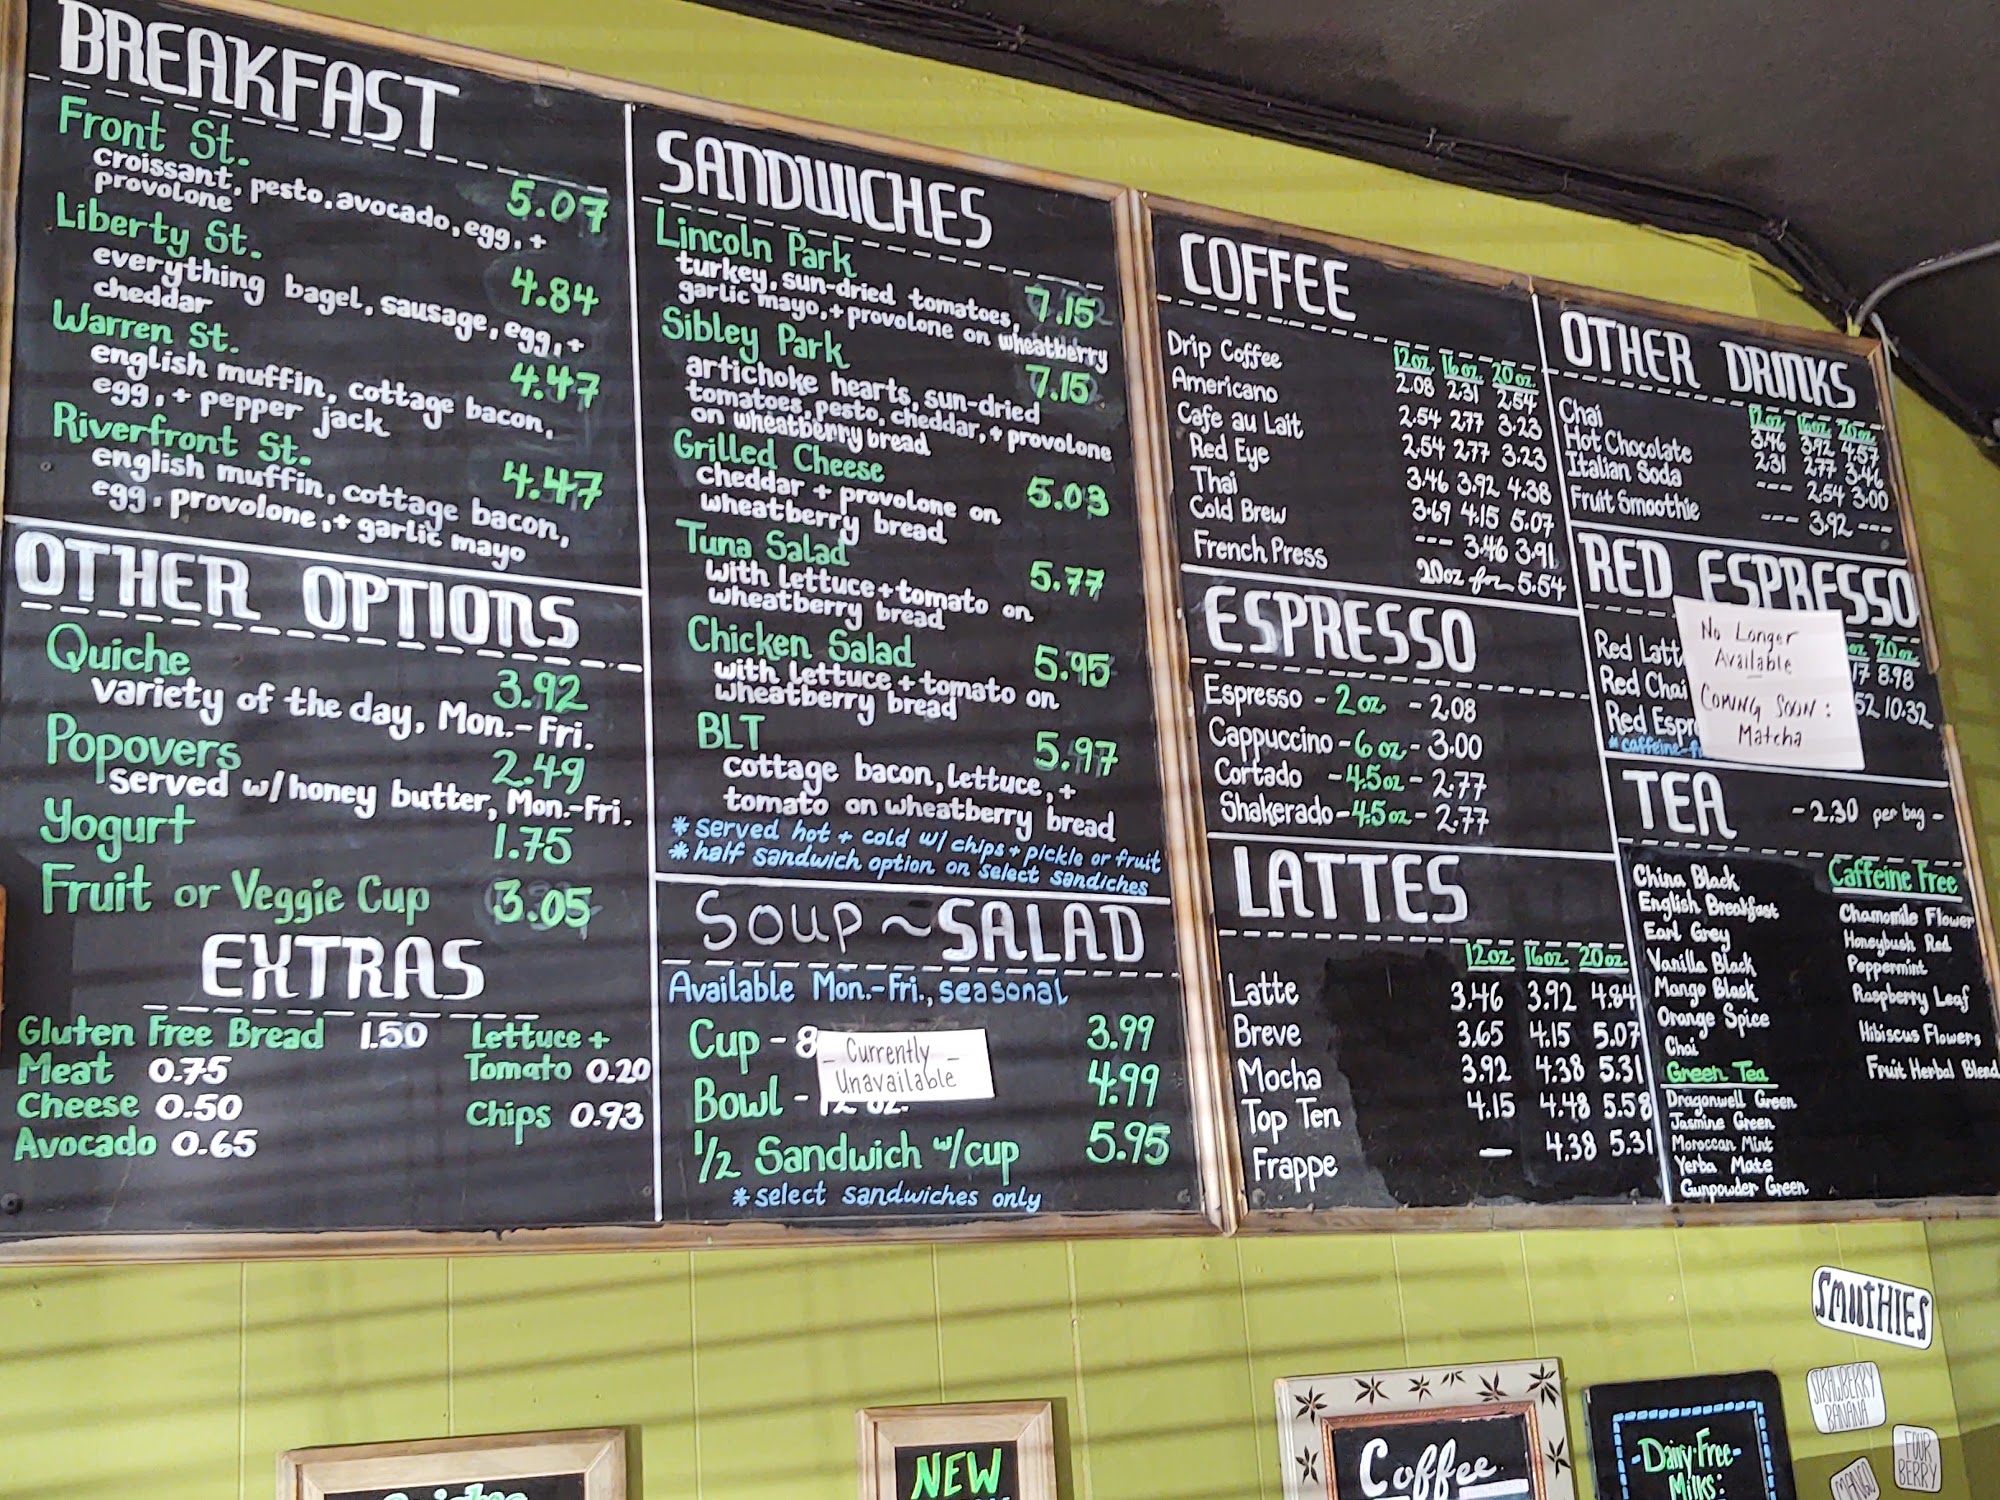 BREAKFAST
Front St.
5.07
croissant, pesto, avocado, egg, +
provolone
Liberty St.
4.84
everything bagel, sausage, egg, +
cheddar
Warren St.
4.47
english muffin, cottage bacon,
egg, + pepper jack
Riverfront St.
4.47
english muffin, cottage bacon,
egg, provolone, + garlic mayo
OTHER OPTIONS
Quiche 3.92
variety of the day, Mon.-Fri.
Popovers 2.49
served w/honey butter, Mon.-Fri.
Yogurt 1.75
Fruit or Veggie Cup 3.05
EXTRAS
Gluten Free Bread 1.50
Meat 0.75
Cheese 0.50
Avocado 0.65
Lettuce +
Tomato 0.20
Chips 0.93
SANDWICHES
Lincoln Park
7.15
turkey, sun-dried tomatoes,
garlic mayo, + provolone on wheatberry
Sibley Park
7.15
artichoke hearts, sun-dried
tomatoes, pesto, cheddar, + provolone
on wheatberry bread
Grilled Cheese
5.03
cheddar + provolone on
wheatberry bread
Tuna Salad
5.77
with lettuce + tomato on
wheatberry bread
Chicken Salad
5.95
with lettuce + tomato on
wheatberry bread
BLT
5.97
cottage bacon, lettuce, +
tomato on wheatberry bread
* served hot + cold w/ chips + pickle or fruit
* half sandwich option on select sandiches
SOUP ~ SALAD
Available Mon.-Fri., seasonal
Cup - 8 3.99
Bowl - 12 oz. 4.99
- Currently -
Unavailable
1/2 Sandwich w/cup 5.95
* select sandwiches only
COFFEE
12oz. 16oz. 20oz.
Drip Coffee 2.08 2.31 2.54
Americano 2.54 2.77 3.23
Cafe au Lait 2.54 2.77 3.23
Red Eye 3.46 3.92 4.38
Thai 3.69 4.15 5.07
Cold Brew --- 3.46 3.91
French Press 20oz for 5.54
ESPRESSO
Espresso - 2oz. - 2.08
Cappuccino - 6oz - 3.00
Cortado - 4.5oz - 2.77
Shakerado - 4.5oz - 2.77
LATTES
12oz. 16oz. 20oz.
Latte 3.46 3.92 4.84
Breve 3.65 4.15 5.07
Mocha 3.92 4.38 5.31
Top Ten 4.15 4.48 5.58
Frappe — 4.38 5.31
OTHER DRINKS
12oz. 16oz. 20oz.
Chai 3.46 3.92 4.57
Hot Chocolate 2.31 2.77 3.46
Italian Soda --- 2.54 3.00
Fruit Smoothie --- 3.92 ---
RED ESPRESSO
oz. 20oz.
Red Latt 17 8.98
Red Chai 52 10.32
Red Espr
* caffeine-f
No Longer
Available
COMING SOON:
Matcha
TEA - 2.30 per bag -
China Black
English Breakfast
Earl Grey
Vanilla Black
Mango Black
Orange Spice
Chai
Green Tea
Dragonwell Green
Jasmine Green
Moroccan Mint
Yerba Mate
Gunpowder Green
Caffeine Free
Chamomile Flower
Honeybush Red
Peppermint
Raspberry Leaf
Hibiscus Flowers
Fruit Herbal Blend
SMOOTHIES
STRAWBERRY
BANANA
FOUR
BERRY
MANGO
NEW
Coffee
-Dairy-Free-
Milks: